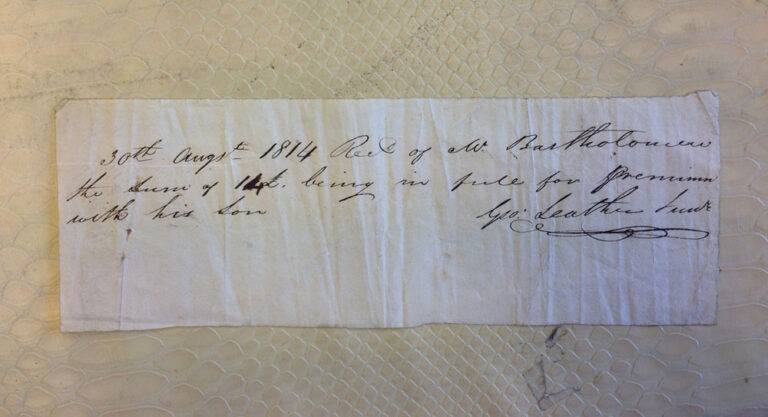 30th Augst 1814 Recd of Mr. Bartholomew
the Sum of being in full for premium
with his Son Geo: Leather Junr